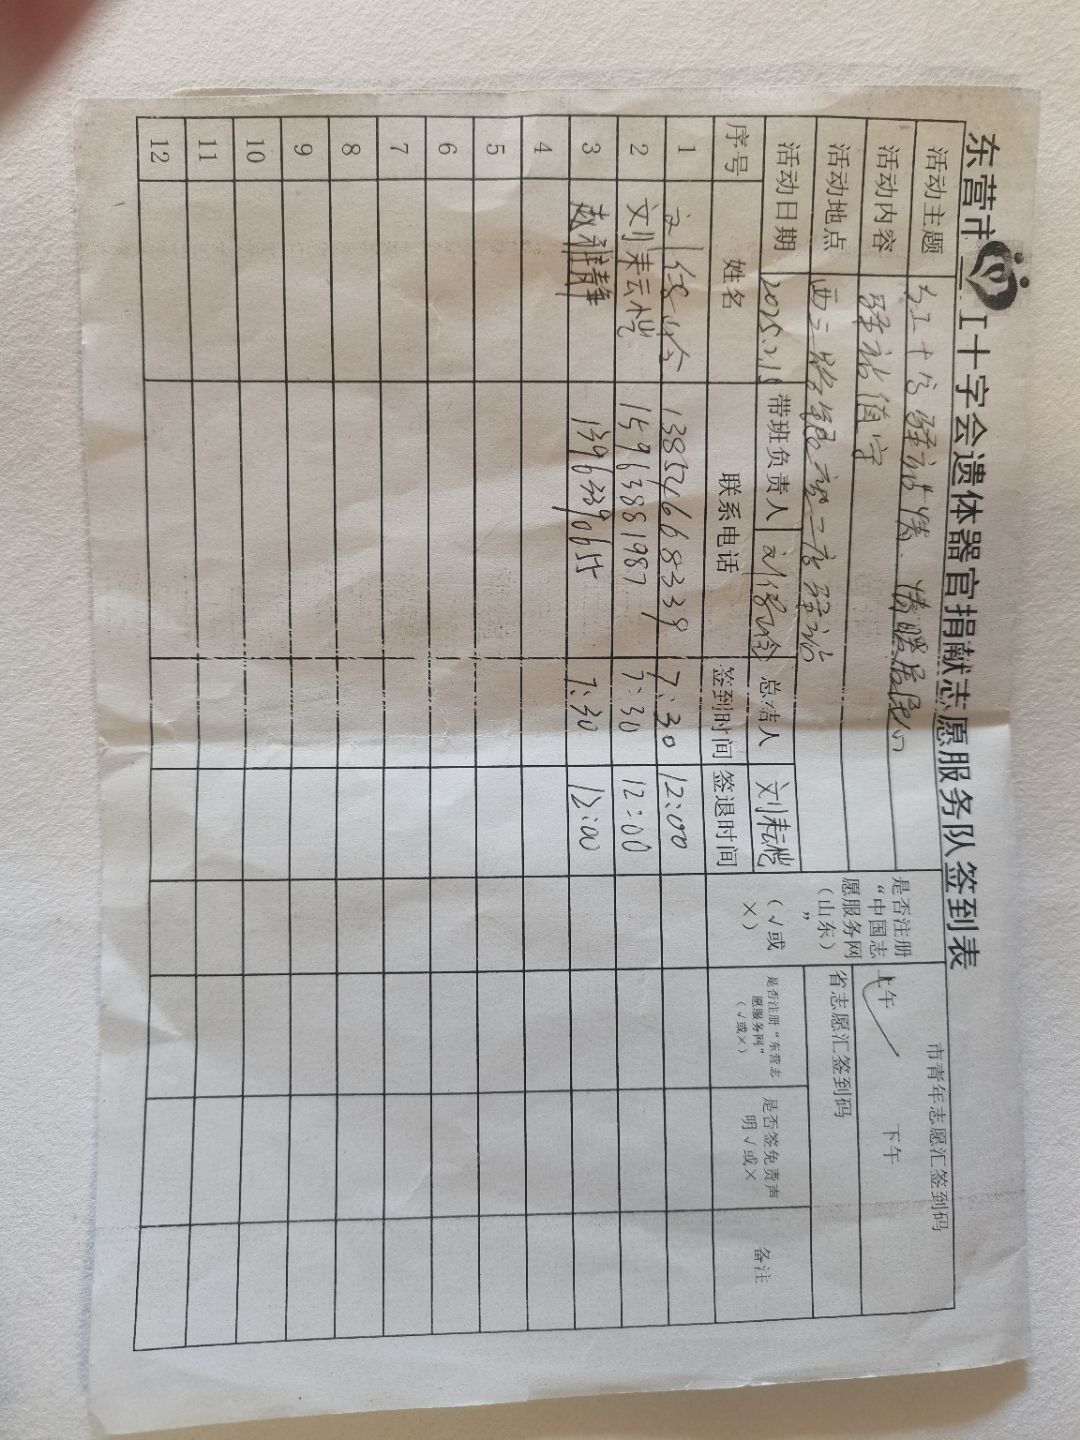 东营市红十字会遗体器官捐献志愿服务队签到表
活动主题 红十字驿站情、情暖居民心
活动内容 驿站值守
活动地点 西三路 驿站
活动日期 2025.2.15 带班负责人 总结人 刘耘恺
是否注册“中国志愿服务网”（山东）（√或×）
市青年志愿汇签到码
上午 下午
省志愿汇签到码
序号 姓名 联系电话 签到时间 签退时间 是否注册“东营志愿服务网”（√或×） 是否签免责声明√或× 备注
1 13854668339 7:30 12:00
2 刘耘恺 15963881987 7:30 12:00
3 赵雅静 7:30 12:00
4
5
6
7
8
9
10
11
12